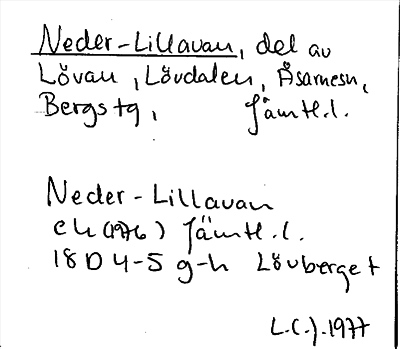 Neder-Lillavan, del av
Lövan, Lövdalen, Åsarnesn,
Bergs tg, Jämtl.l.
Neder-Lillavan
ek (1976) Jämtl.l.
18D 4-5 g-h Lövberget
L.C.J. 1977